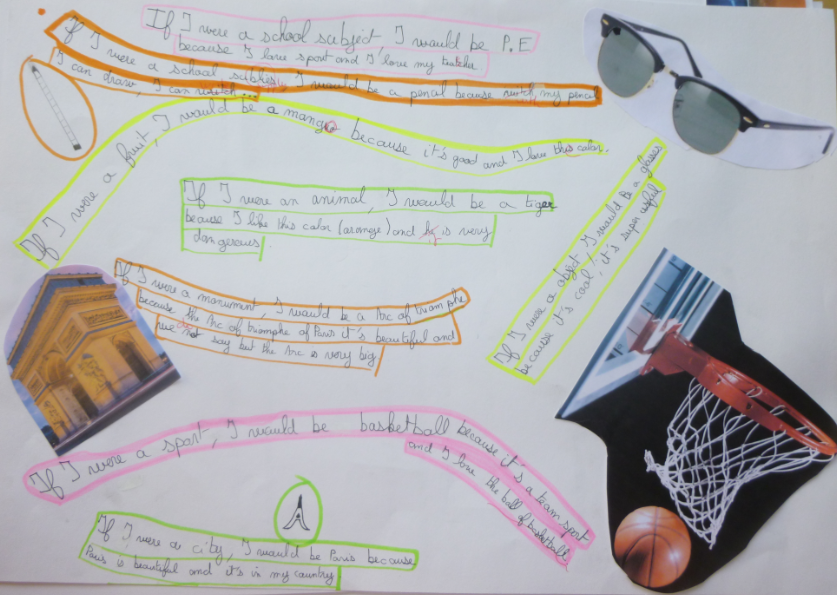 If I were a school subject, I would be P.E
because I love sport and I love my teacher
If I were a school subject, I would be a pencil because with my pencil
I can draw, I can write...
If I were a fruit, I would be a mango because it's good and I love this color.
If I were an animal, I would be a tiger
because I like this color (orange) and it is very
dangerous.
If I were a object I would be a glasses
because it's cool, it's super useful!
If I were a monument, I would be a Arc of triomphe
because the Arc of triomphe of Paris it's beautiful and
we not say but the Arc is very big
If I were a sport, I would be basketball because it's a team sport
and I love the ball of basketball
If I were a city, I would be Paris because
Paris is beautiful and it's in my country